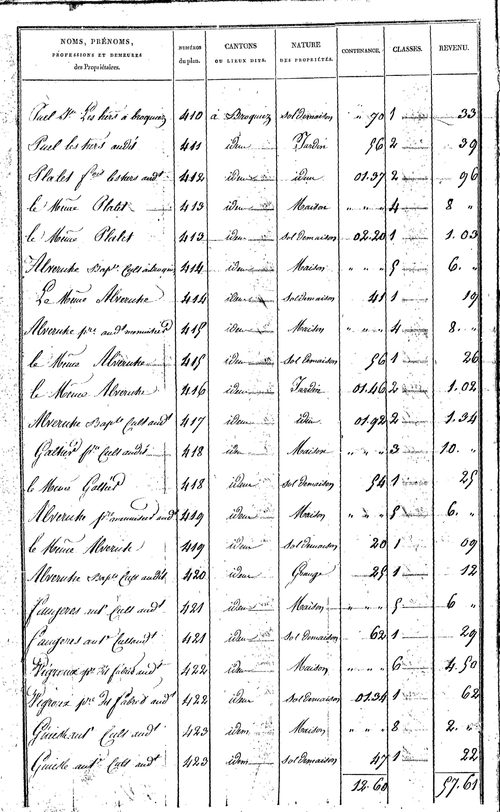 NOMS, PRÉNOMS, PROFESSIONS ET DEMEURES des Propriétaires. NUMÉROS du plan. CANTONS OU LIEUX DITS. NATURE DES PROPRIÉTÉS. CONTENANCE. CLASSES. REVENU.
Puel Les tiers à Broquiez 410 à Broquiez sol de maison " 70 1 33
Puel les tiers audit 411 idem Jardin 56 2 39
Platet les tiers audt 412 idem idem 01.37 2 96
le Même Platet 413 idem Maison " " " 4 8 "
le Même Platet 413 idem Sol de maison 02.20 1 1.03
Alveruhe Bapte Cult à 414 idem Maison " " " 5 6. "
Le Même Alveruhe 414 idem sol de maison 41 1 19
Alveruhe pre audt menuisier 415 idem Maison " " " 4 8. "
le Même Alveruhe 415 idem Sol de maison 56 1 26
le Même Alveruhe 416 idem Jardin 01.46 2 1.02
Alveruhe Bapte Cult audt 417 idem idem 01.92 2 1.34
Galtier pre Cult audit 418 idm Maison " " " 3 10. "
le Même Galtier 418 idem sol de maison 54 1 25
Alveruhe pre menuisier audt 419 idem Maison " " " 5 6. "
le Même Alveruhe 419 idem Sol de maison 20 1 09
Alveruhe Bapte Cult audit 420 idem Grange 25 1 12
Faugeres ant Cult audt 421 idem Maison " " " 5 6 "
Faugeres ant Cult audt 421 idem Sol de maison 62 1 29
Vigroux pre dit fabrié audt 422 idem Maison " " " 6 4.50
Vigroux pre dit fabrié audt 422 idem Sol de maison 01.34 1 62
ant Cult audt 423 idem Maison " " " 8 2. "
ant Cult audt 423 idem Sol de maison 47 1 22
12.60 57.61